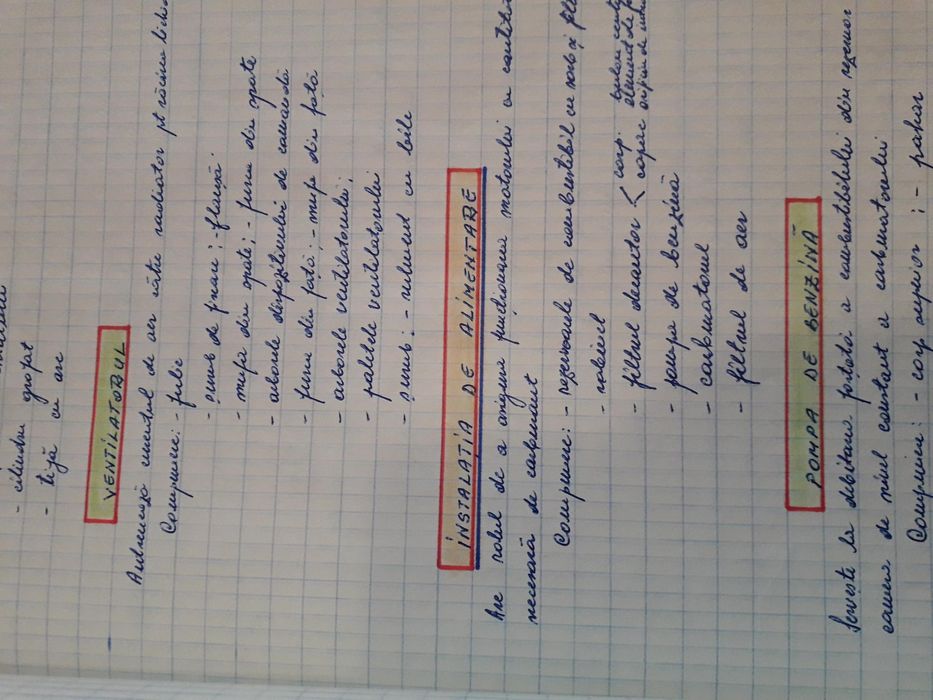 - cilindru gofrat
- tijă cu arc
VENTILATORUL
Activează curentul de aer către radiator pt răcirea
Componenţa: - fulie
- şurub de fixare; - flanşă
- mufa din spate; - piesa din spate
- arborele dispozitivului de comandă
- piesa din faţă; - mufa din faţă
- arborele ventilatorului;
- paletele ventilatorului
- şurub; - rulment cu bile
INSTALAŢIA DE ALIMENTARE
Are rolul de a asigura funcţionarea motorului cu
necesară de carburant
Componenţa: - rezervorul de combustibil cu sorb şi
- robinet
- filtrul decantor < corp
capac
- pompa de benzină
- carburatorul
- filtrul de aer
POMPA DE BENZINĂ
Serveşte la debitarea forţată a combustibilului din rezervor
camera de nivel constant a carburatorului
Componenţa: - corp superior; - pahar